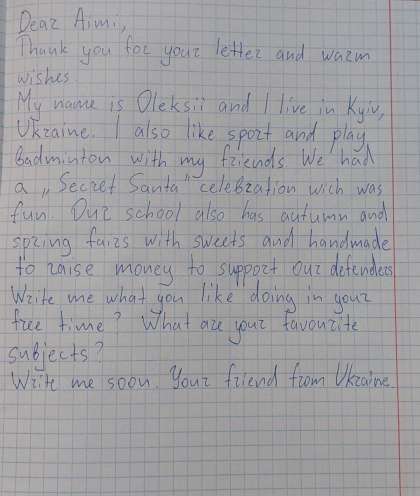 Dear Aimi,
Thank you for your letter and warm
wishes.
My name is Oleksii and I live in Kyiv,
Ukraine. I also like sport and play
badminton with my friends We had
a „Secret Santa" celebration wich was
fun. Our school also has autumn and
spring fairs with sweets and handmade
to raise money to support our defenders
Write me what you like doing in your
free time? What are your favourite
subjects?
Write me soon. Your friend from Ukraine.